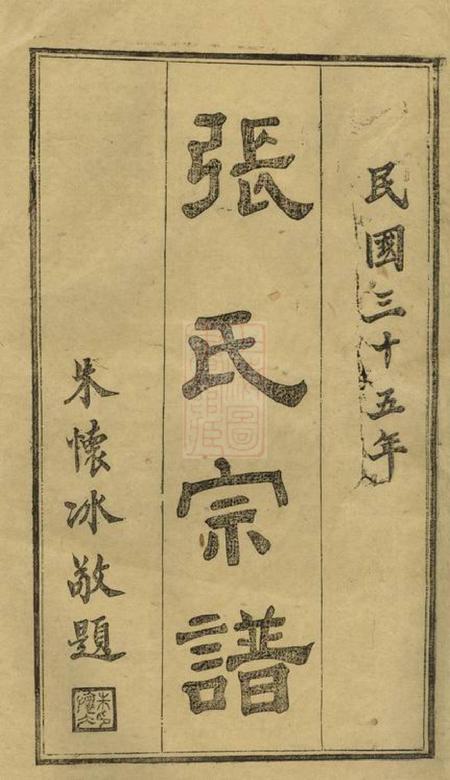 民國三十五年
張氏宗譜
朱懷冰敬題